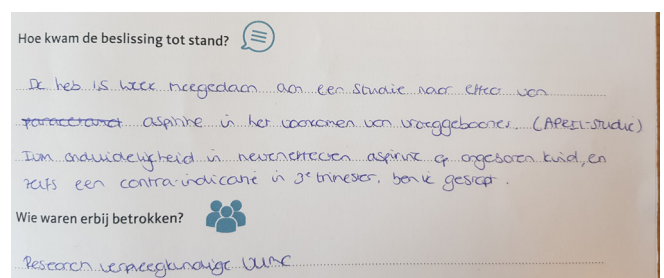 Hoe kwam de beslissing tot stand?
Ik heb 15 week meegedaan aan een studie naar effect van
paracetamol aspirine in het voorkomen van vroeggeboortes. (APRIL-studie)
I.v.m. onduidelijkheid in neveneffecten aspirine op ongeboren kind, en
zelfs een contra-indicatie in 3e trimester, ben ik gestopt.
Wie waren erbij betrokken?
Research verpleegkundige